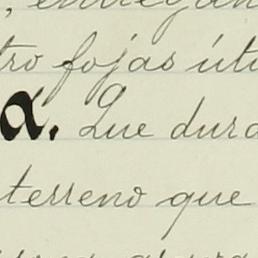 , entregan
tro fojas úti
a. Que dura
terreno que